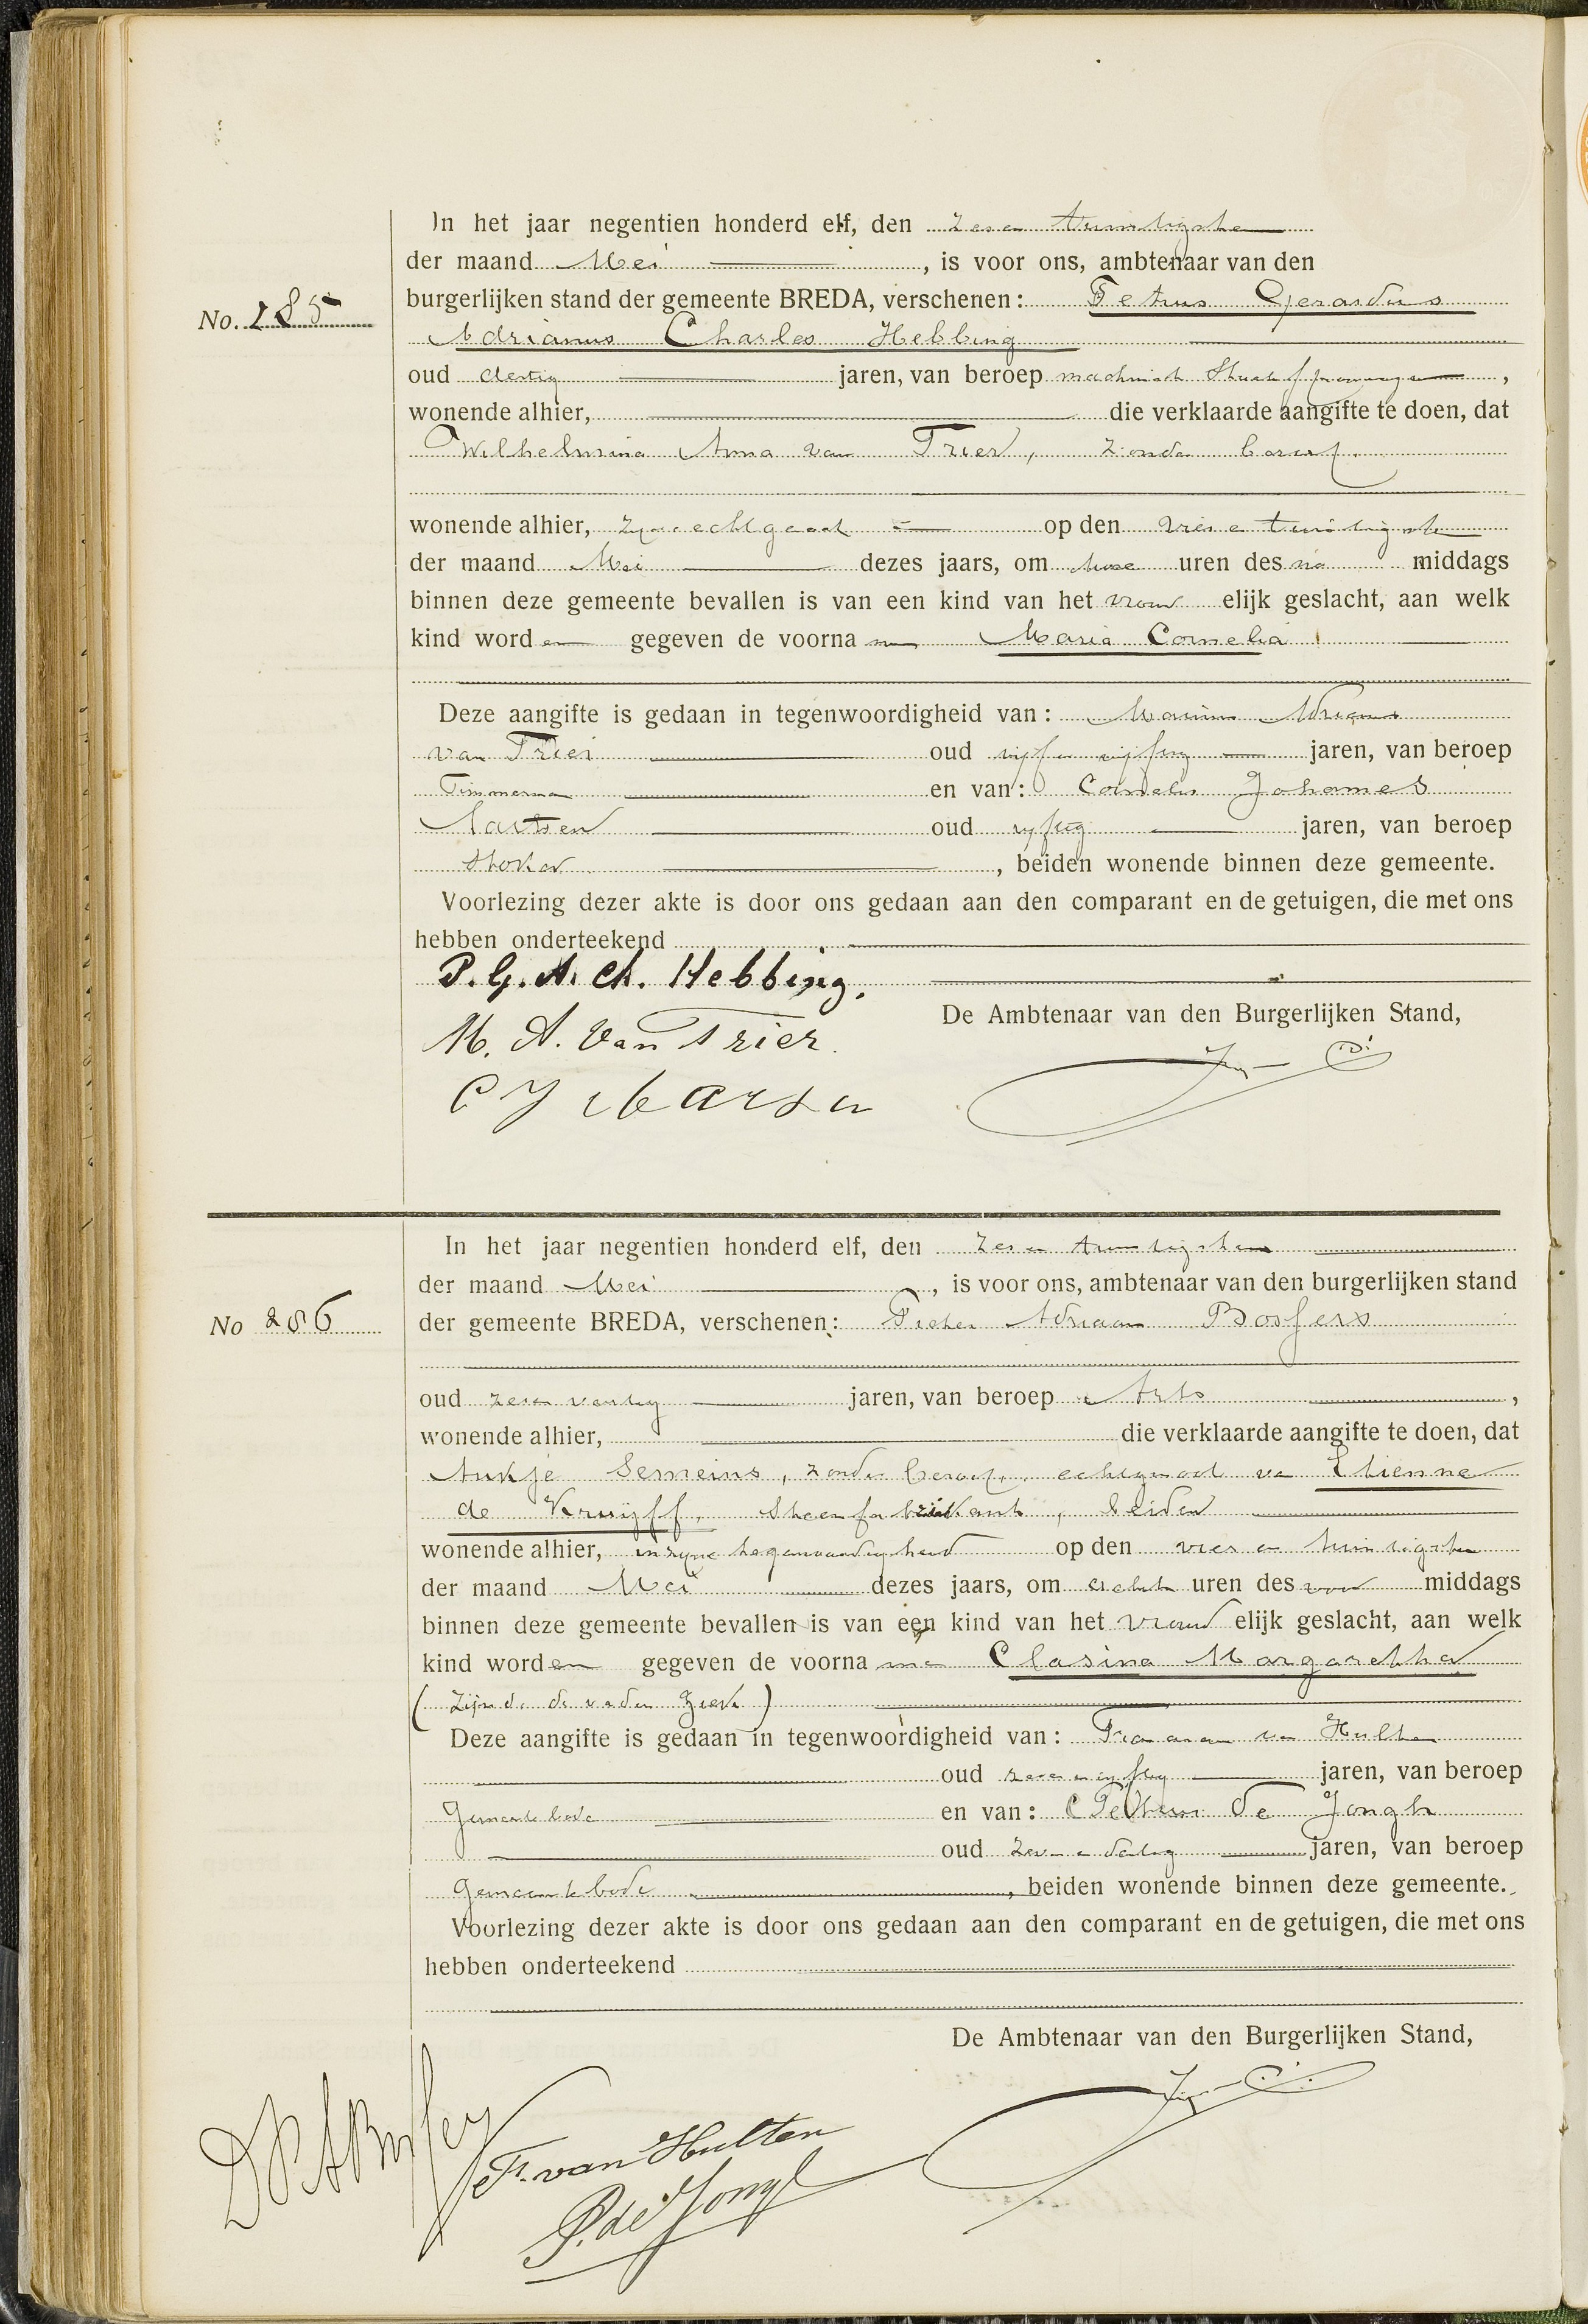 In het jaar negentien honderd elf, den zesen twintigsten
der maand Mei, is voor ons, ambtenaar van den
burgerlijken stand der gemeente BREDA, verschenen: Petrus Gerardus
No. 285
Adrianus Charles Hebbing
oud dertig jaren, van beroep machinist Staatsspoorwegen,
wonende alhier, die verklaarde aangifte te doen, dat
Wilhelmina Anna van Trier, zonder beroep,
wonende alhier, zijne echtgenoot op den vier en twintigste
der maand Mei dezes jaars, om twee uren des na middags
binnen deze gemeente bevallen is van een kind van het vrouw elijk geslacht, aan welk
kind worden gegeven de voorna men Maria Cornelia
Deze aangifte is gedaan in tegenwoordigheid van: Marinus Adrianus
van Trier oud vijf en vijftig jaren, van beroep
Timmerman en van: Cornelis Johannes
oud vijftig jaren, van beroep
Stoker, beiden wonende binnen deze gemeente.
Voorlezing dezer akte is door ons gedaan aan den comparant en de getuigen, die met ons
hebben onderteekend
P. G. A. Ch. Hebbing.
De Ambtenaar van den Burgerlijken Stand,
M. A. Van Trier.
C J
In het jaar negentien honderd elf, den zes en twintigsten
der maand Mei, is voor ons, ambtenaar van den burgerlijken stand
No 286
der gemeente BREDA, verschenen: Pieter Adriaan Bosfers
oud zes en veertig jaren, van beroep Arts,
wonende alhier, die verklaarde aangifte te doen, dat
Aukje Semeins, zonder beroep, echtgenoot van Etienne
de Kruijff, Steenfabrikant, beiden
wonende alhier, in zijne tegenwoordigheid op den vier en twintigsten
der maand Mei dezes jaars, om acht uren des voor middags
binnen deze gemeente bevallen is van een kind van het vrouw elijk geslacht, aan welk
kind worden gegeven de voorna men Clasina Margaretha
(zijnde de vader ziek)
Deze aangifte is gedaan in tegenwoordigheid van: van Hulten
oud zeven en vijftig jaren, van beroep
Gemeentebode en van: Petrus de Jongh
oud zeven en dertig jaren, van beroep
Gemeentebode, beiden wonende binnen deze gemeente.
Voorlezing dezer akte is door ons gedaan aan den comparant en de getuigen, die met ons
hebben onderteekend
De Ambtenaar van den Burgerlijken Stand,
F. van Hulten
P. de Jongh